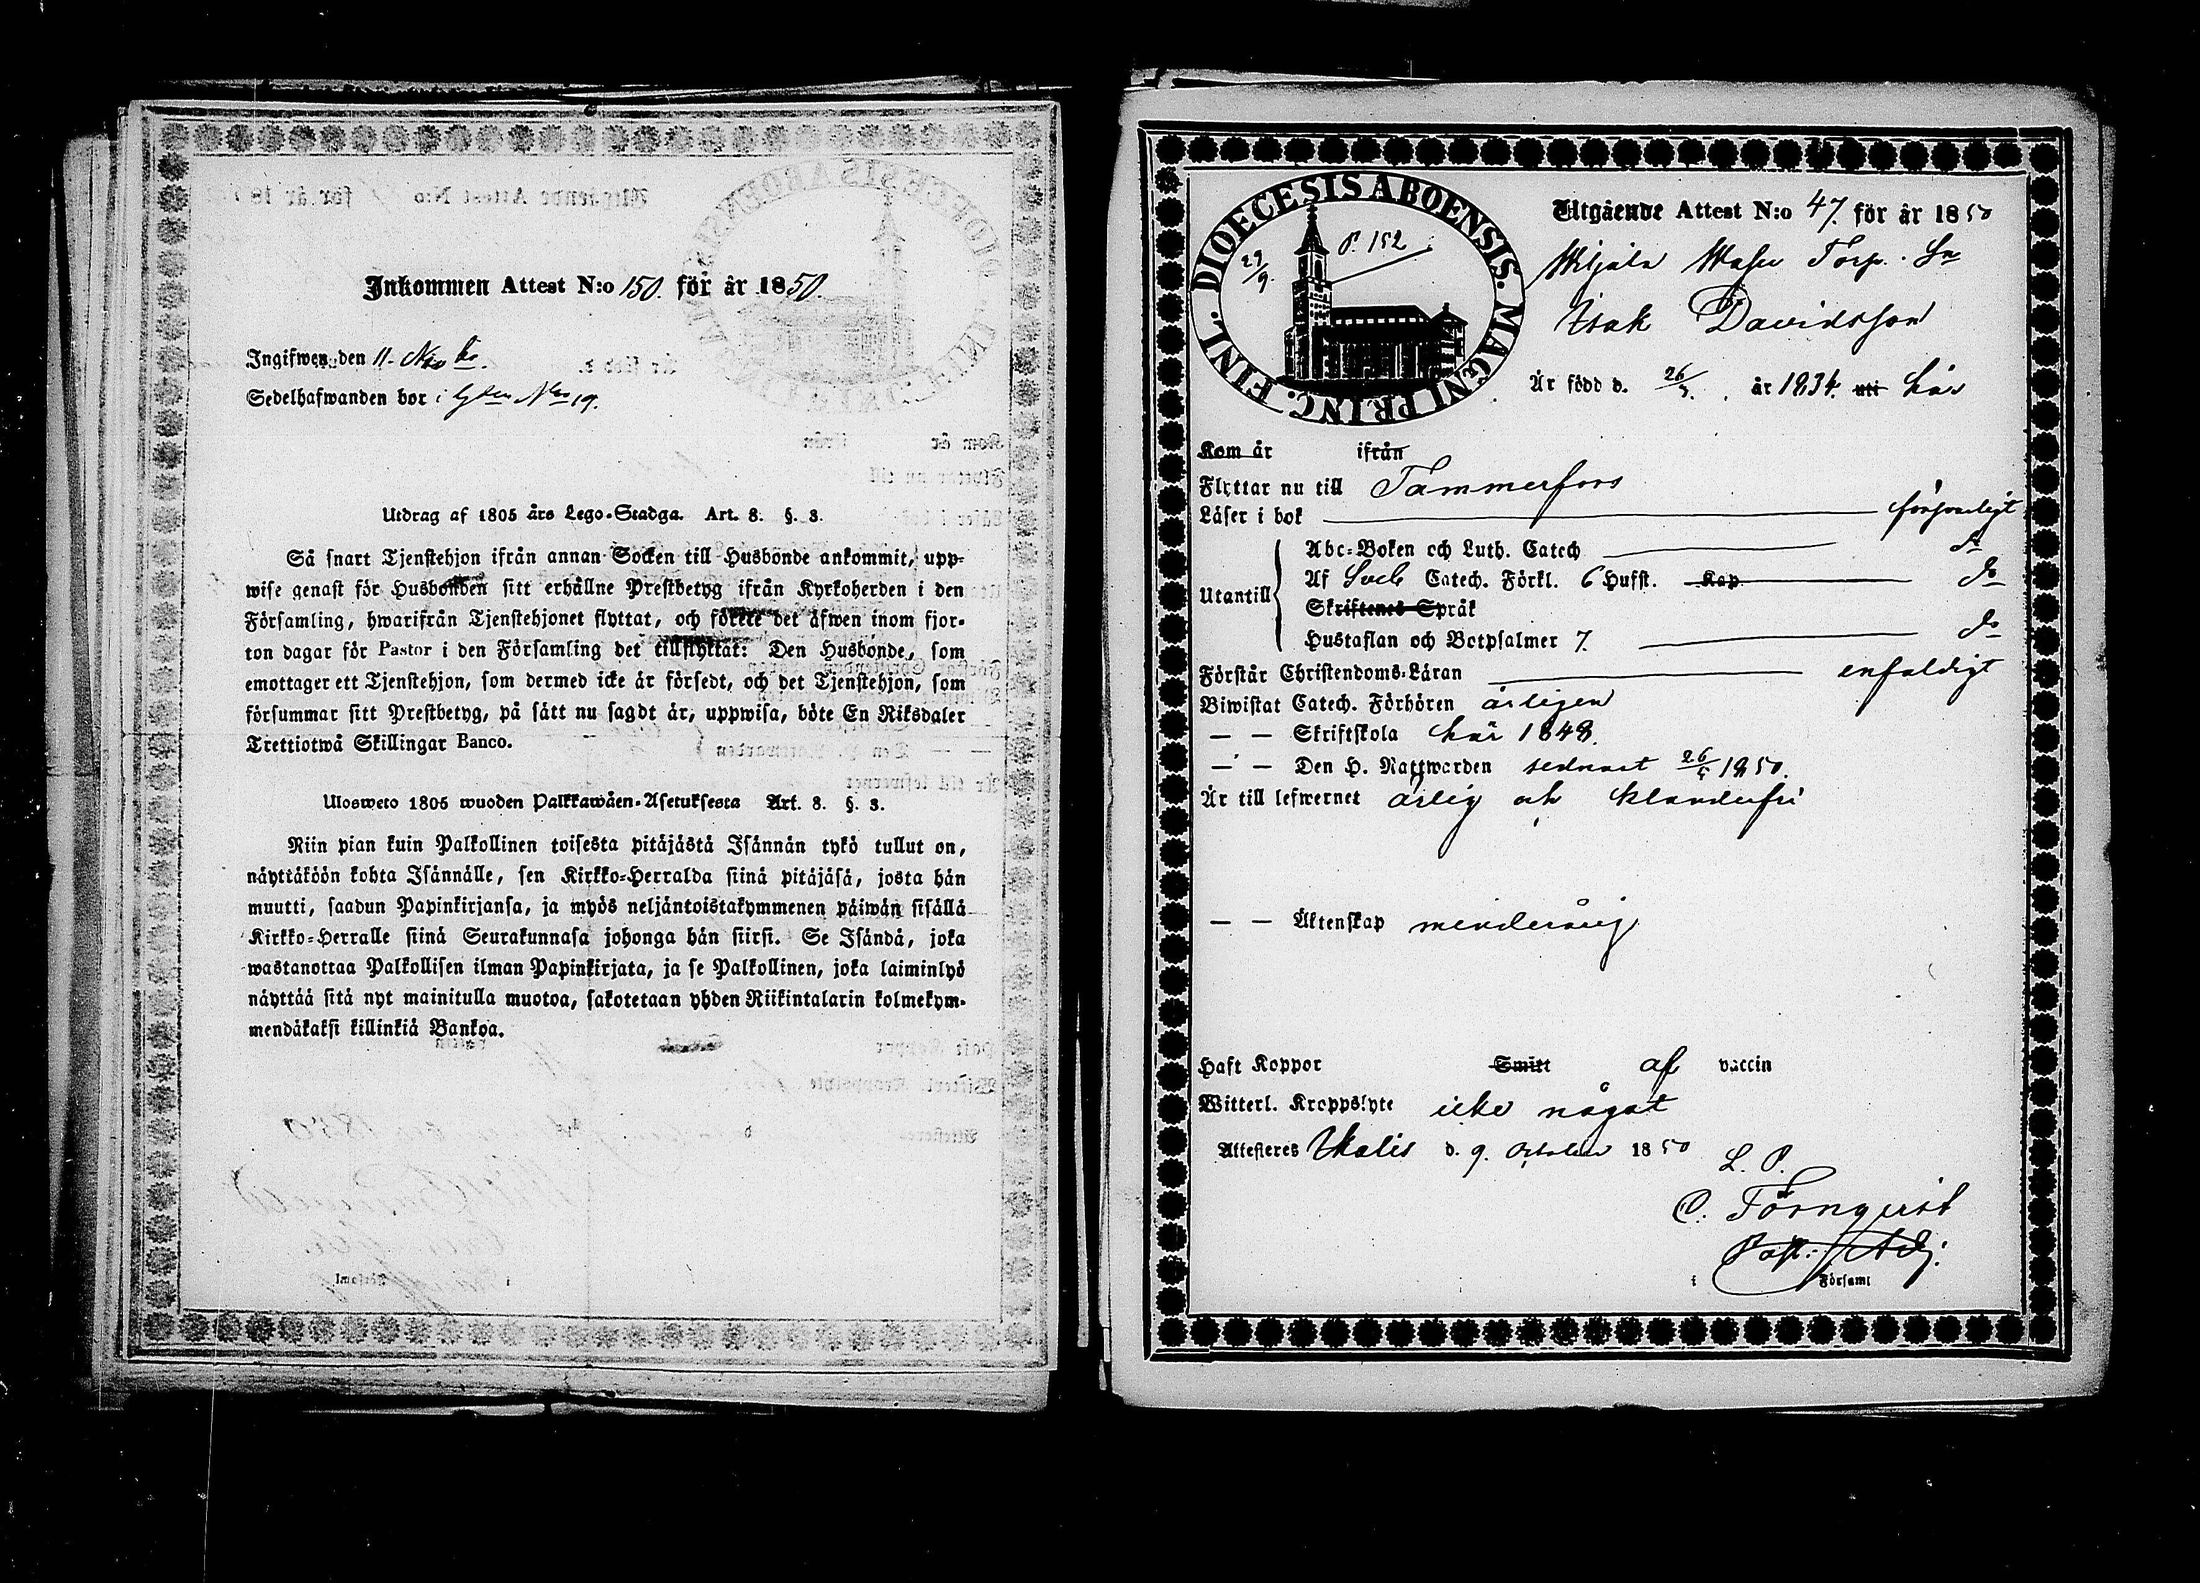 Inkommen Attest N:o 150. för år 1850.
Ingifwen den 11.
Sedelhafwanden bor i 19.
Utdrag af 1805 års Lego-Stadga. Art. 8. §. 3.
Så snart Tjenstehjon ifrån annan Socken till Husbonde ankommit, upp-
wise genast för Husbonden sitt erhållne Prestbetyg ifrån Kyrkoherden i den
Församling, hwarifrån Tjenstehjonet flyttat, och förete det äfwen inom fjor-
ton dagar för Pastor i den Församling det tillflyttat: Den Husbonde, som
emottager ett Tjenstehjon, som dermed icke är försedt, och det Tjenstehjon, som
försummar sitt Prestbetyg, på sätt nu sagdt är, uppwisa, böte En Riksdaler
Trettiotwå Skillingar Banco.
Ulosweto 1805 wuoden Palkkawäen-Asetuksesta Art. 8. §. 3.
Niin pian kuin Palkollinen toisesta pitäjästä Isännän tykö tullut on,
näyttäköön kohta Isännälle, sen Kirkko-Herralda siinä pitäjäsä, josta hän
muutti, saadun Papinkirjansa, ja myös neljäntoistakymmenen päiwän sisällä
Kirkko-Herralle siinä Seurakunnasa johonga hän siirsi. Se Isändä, joka
wastanottaa Palkollisen ilman Papinkirjata, ja se Palkollinen, joka laiminlyö
näyttää sitä nyt mainitulla muotoa, sakotetaan yhden Riikintalarin kolmekym-
mendäkaksi killinkiä Bankoa.
DIOECESIS ABOENSIS. MAGNI PRINC. FINL.
29/9. P. 152
Utgående Attest N:o 47. för år 1850
Torp. Sn
Isak Davidsson
Är född d. 26/3. år 1834. uti här
Kom år ifrån
Flyttar nu till Tammerfors
Läser i bok försvarligt
Abc-Boken och Luth. Catech do
Utantill Af Sveb Catech. Förkl. 6 Hufst. Kap. do
Skriftenes Språk
Hustaflan och Botpsalmer 7. do
Förstår Christendoms-Läran enfaldigt
Biwistat Catech. Förhören årligen
— — Skriftskola här 1848.
— — Den H. Nattwarden sednast 26/5 1850.
Är till lefwernet ärlig och klanderfri
— — Äktenskap minderårig
Haft Koppor Smitt af vaccin
Witterl. Kroppslyte icke något
Attesteres Ikalis d. 9. October 1850
L. P.
C. Törnqvist
Past. Adj.
i Församl